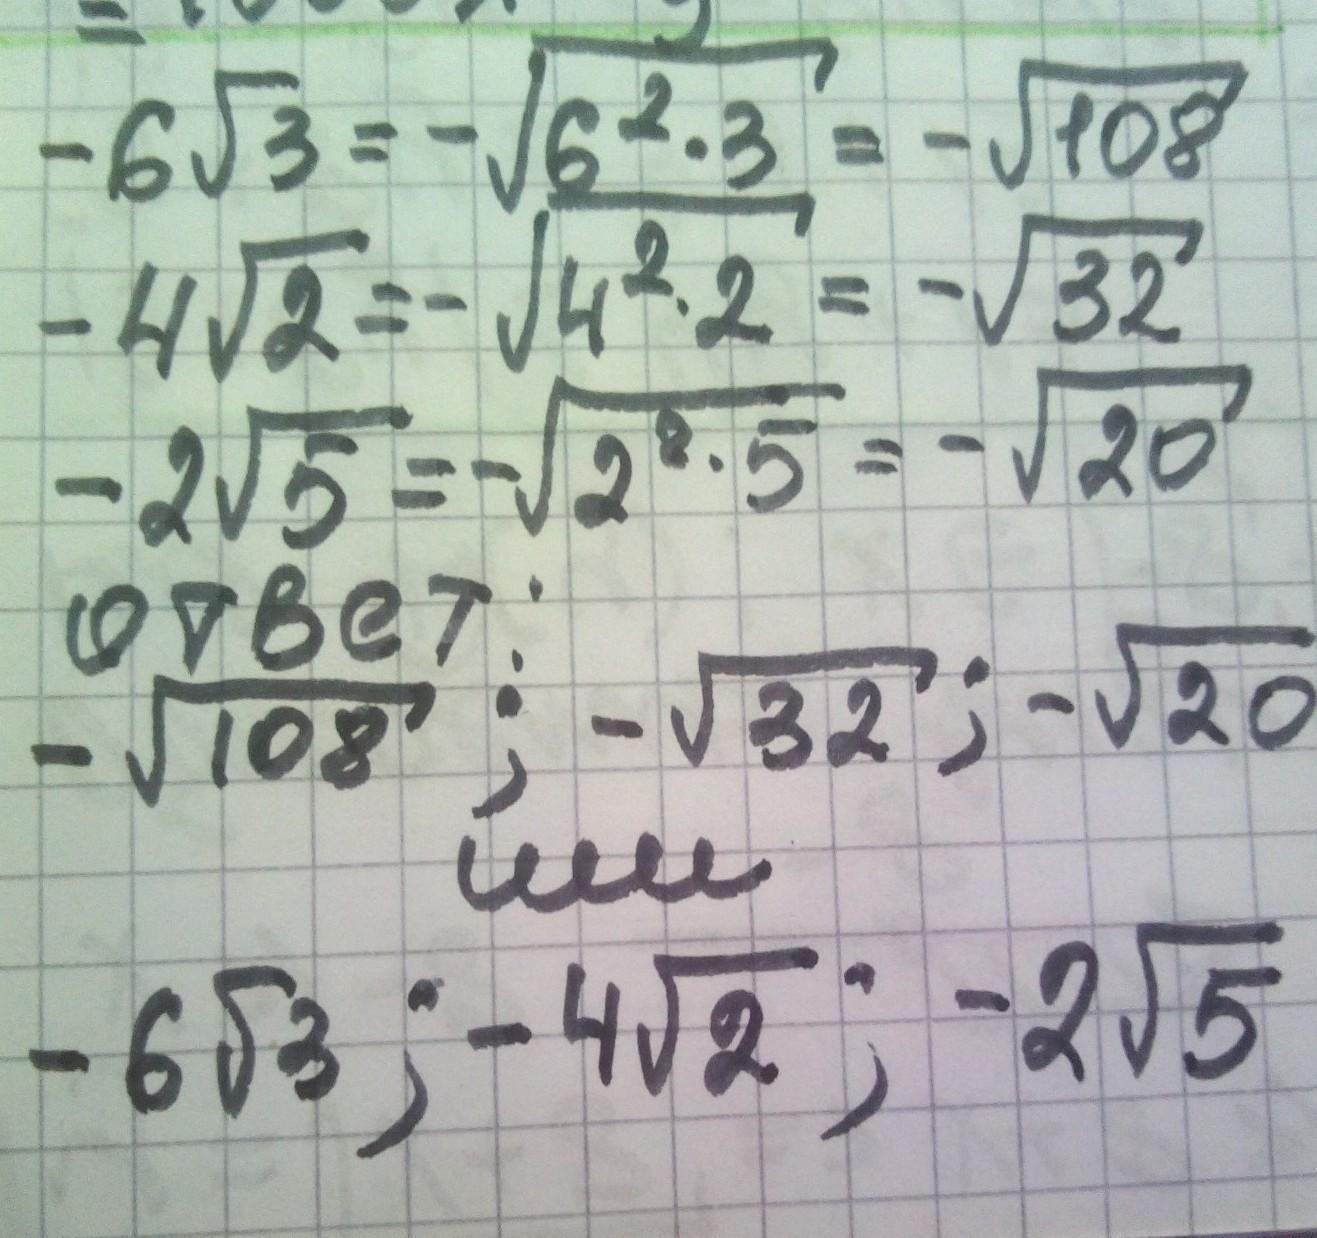 -6√3 = -√6²·3 = -√108
-4√2 = -√4²·2 = -√32
-2√5 = -√2²·5 = -√20
ответ:
-√108 ; -√32 ; -√20
или
-6√3 ; -4√2 ; -2√5